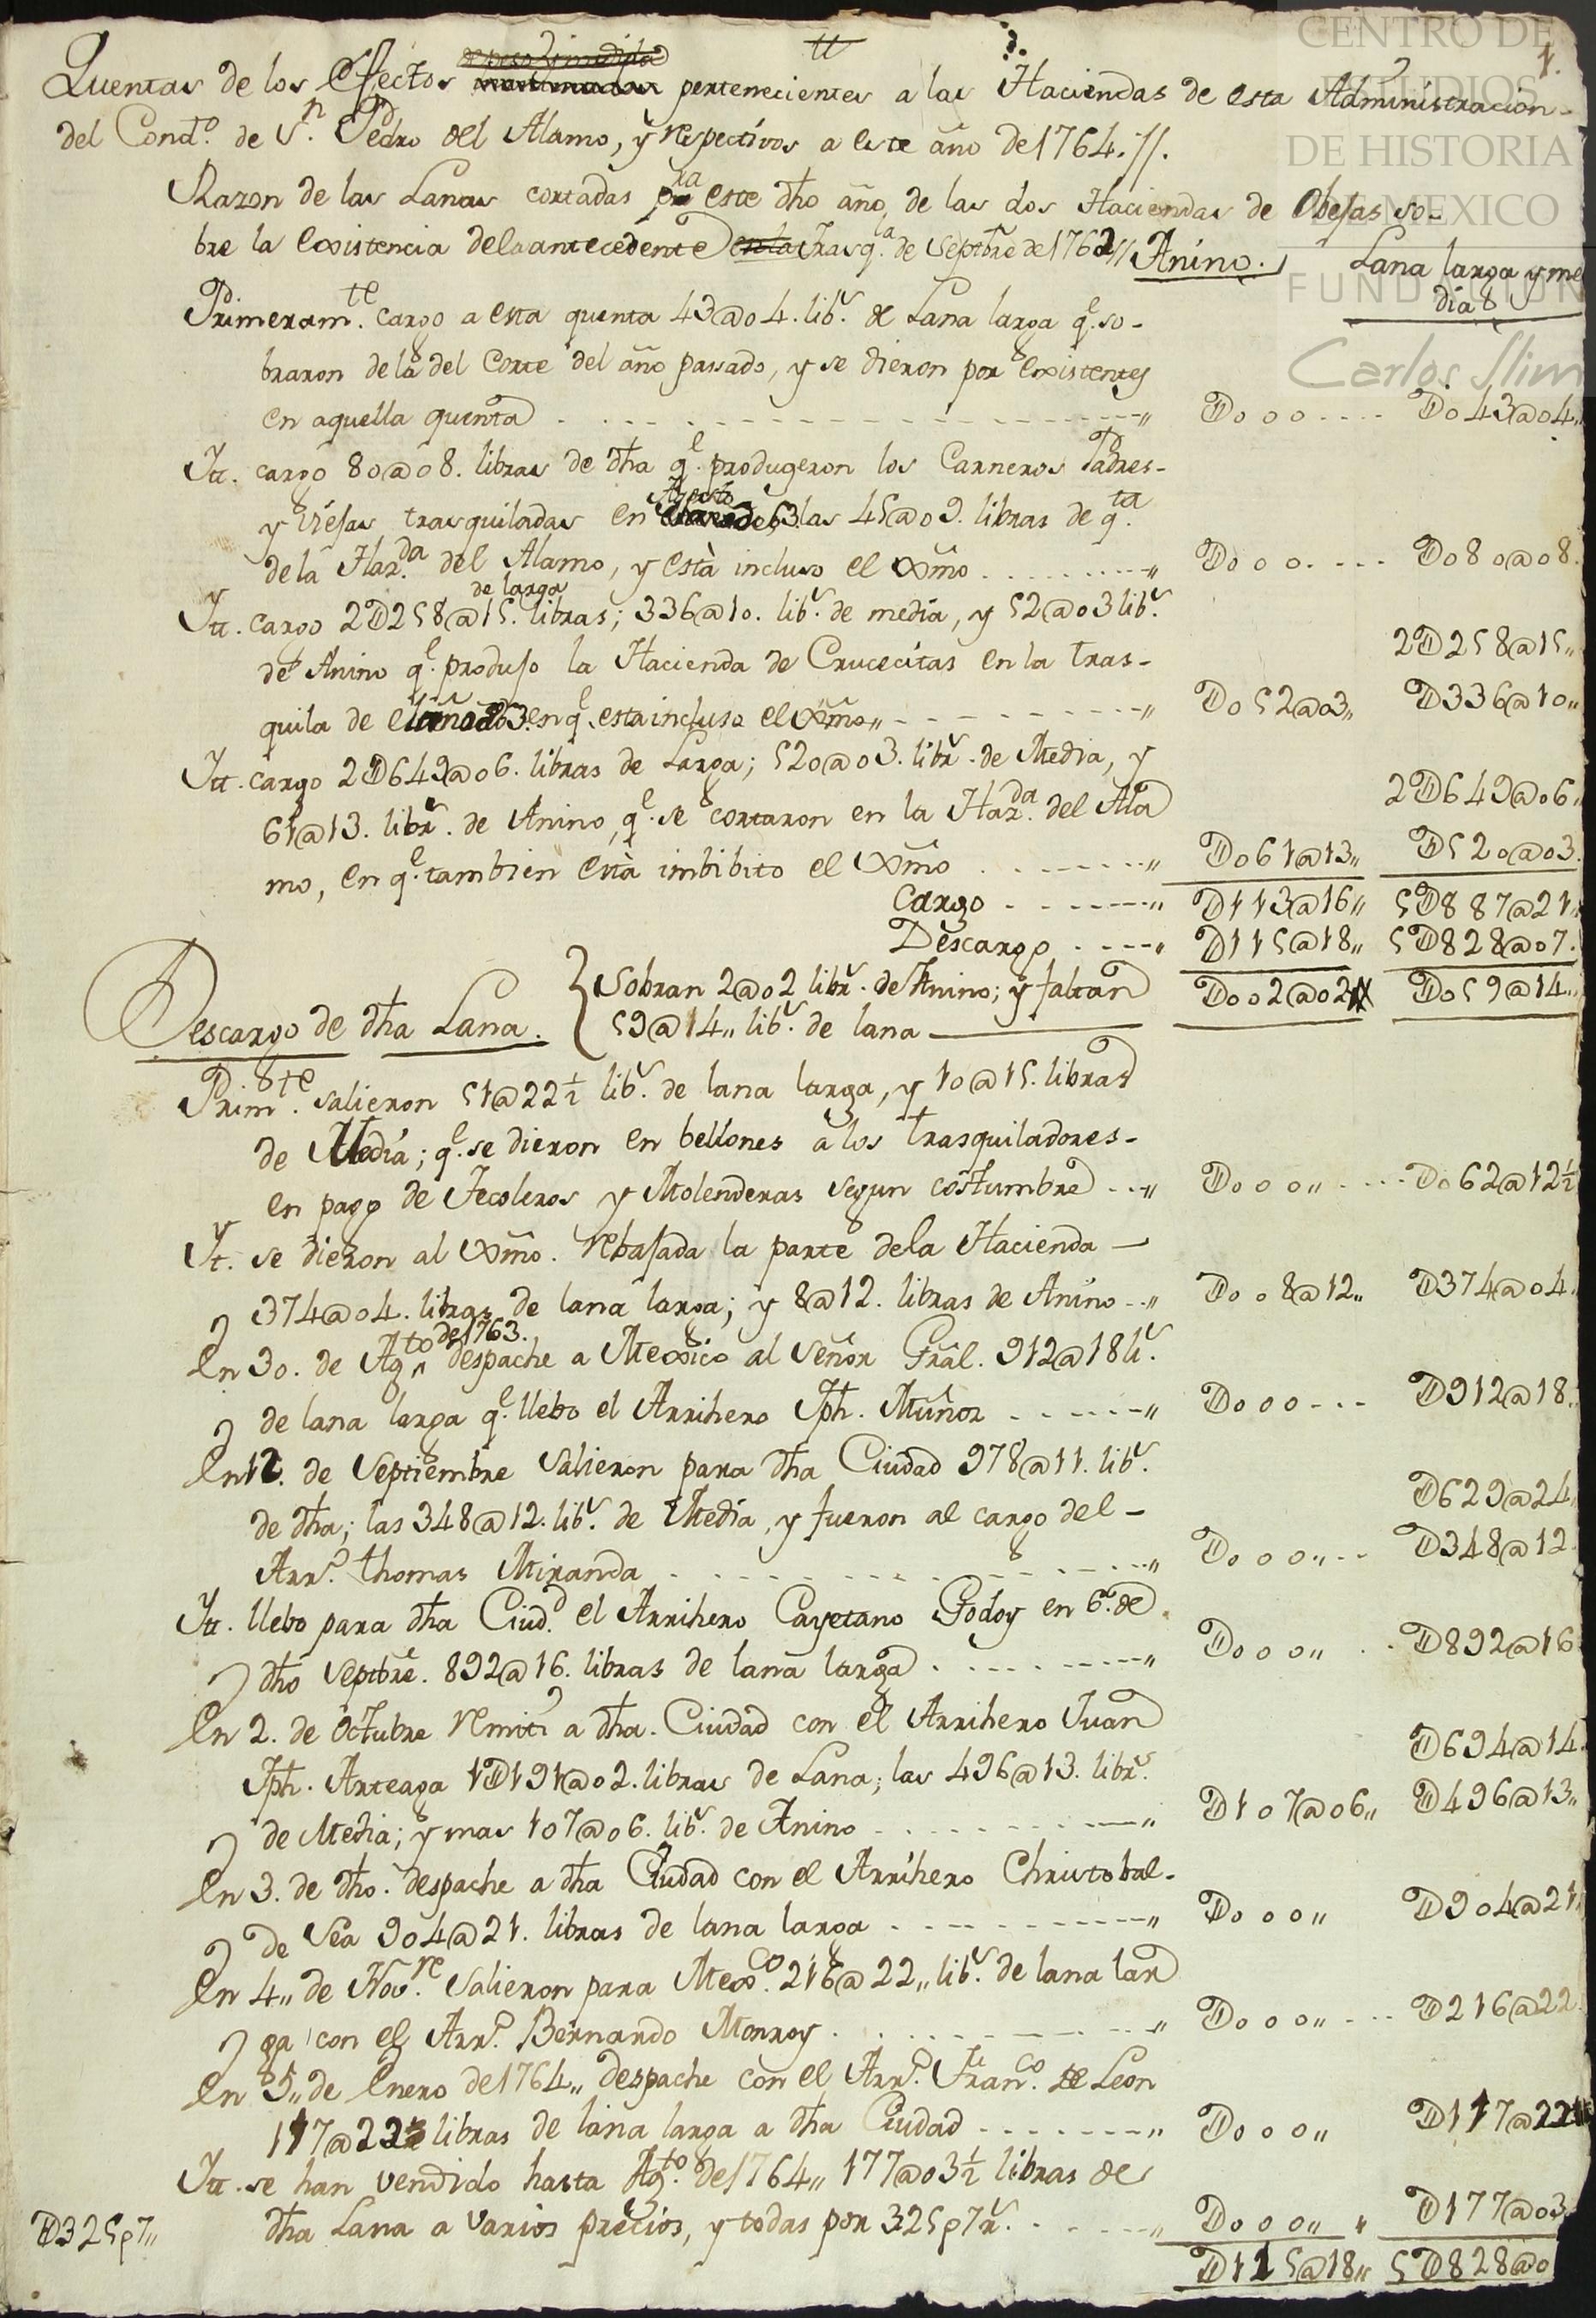 CENTRO DE
ESTUDIOS
DE HISTORIA
DE MEXICO
FUNDACIÓN
Carlos Slim
1.
Quentas de los Efectos pertenecientes a las Haciendas de esta Administracion
del Cond.º de S.n Pedro del Alamo, y respectivos a este año de 1764.//.
Razon de las Lanas cortadas pra este dho año, de las dos Haciendas de Obejas so-
bre la Existencia dela antecedente Trasq.la de Septbre de 1762// Anino. Lana larga y me
dia
Primeram.te cargo a esta quenta 43@04. lib.s de Lana larga q.e so-
braron de la del Corte del año passado, y se dieron por Existentes
en aquella quenta Do00 Do43@04
Itt. cargo 80@08. libras de dha q.e produgeron los Carneros Padres-
y viejas trasquiladas en Agosto 63. las 45@09. libras de q.ta
de la Haz.da del Alamo, y està incluso el Dxmo Do00. Do80@08.
Itt. cargo 2D258@15. de larga libras; 336@10. lib.s de media, y 52@03 lib.s
de Anino q.e produjo la Hacienda de Crucecitas en la tras- 2D258@15
quila de en q.e esta incluso el Dxmo Do52@03 D336@10
Itt. cargo 2D649@06. libras de Larga; 520@03. libr.s de Media, y
61@13. libr.s de Anino, q.e se cortaron en la Haz.da del Ala 2D649@06
mo, en q.e tambien està imbibito el Dxmo Do61@13 D520@03.
Cargo D113@16 5D887@21
Descargo D115@18 5D828@07.
Descargo de dha Lana. Sobran 2@02 libr.s de Anino; y faltan Do02@02 Do59@14
59@14 lib.s de lana
Prim.te salieron 51@22½ lib.s de lana larga, y 10@15. libras
de Media; q.e se dieron en bellones a los trasquiladores-
en pago de Tecoleros y Molenderas segun costumbre Do00 Do62@12½
It. se dieron al Dxmo. rebajada la parte dela Hacienda
374@04. libras de lana larga; y 8@12. libras de Anino Do08@12 D374@04
En 30. de Ag.to de 1763. despache a Mexico al Señor Gräl. 912@18 l.s
de lana larga q.e llebo el Arrihero Jph. Muñoz Do00 D912@18.
En 12. de Septiembre Salieron para dha Ciudad 978@11. lib.s
de dha; las 348@12. lib.s de Media, y fueron al cargo del - D629@24
Arr.o thomas Miranda Do00 D348@12
Itt. llebo para dha Ciud.d el Arrihero Cayetano Godoy en 6. de
dho Septbre. 892@16. libras de lana larga Do00 D892@16
En 2. de Octubre remiti a dha. Ciudad con el Arrihero Juan
Jph. Arteaga 1D191@02. libras de Lana; las 496@13. libr.s D694@14
de Media; y mas 107@06. lib.s de Anino D107@06 D496@13
En 3. de dho. despache a dha Ciudad con el Arrihero Christobal-
de Sea 904@21. libras de lana larga Do00 D904@21
En 4 de Nov.re Salieron para Mex.co 216@22 lib.s de lana lar
ga con el Arr.o Bernardo Monroy Do00 D216@22
En 5 de Enero de 1764 despache con el Arr.o Fran.co de Leon
117@22 libras de lana larga a dha Ciudad Do00 D117@22
Itt. se han vendido hasta Ag.to de 1764 177@03½ libras de
D325p7 dha Lana a varios precios, y todas por 325p7r.s Do00 D177@03
D115@18 5D828@0